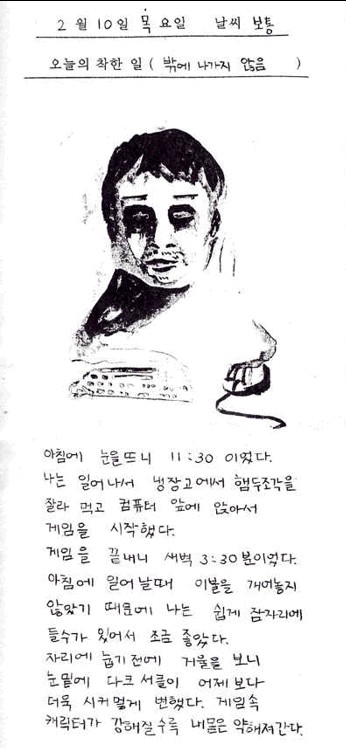 2 월 10 일 목 요일 날씨 보통
오늘의 착한 일 ( 밖에 나가지 않음 )
아침에 눈을 뜨니 11:30 이었다.
나는 일어나서 냉장고에서 햄두조각을
잘라 먹고 컴퓨터 앞에 앉아서
게임을 시작했다.
게임을 끝내니 새벽 3:30분이었다.
아침에 일어날때 이불을 개어놓지
않았기 때문에 나는 쉽게 잠자리에
들수가 있어서 조금 좋았다.
자리에 눕기전에 거울을 보니
눈밑에 다크서클이 어제보다
더욱 시커멓게 변했다. 게임속
캐릭터가 강해질수록 내몸은 약해져간다.